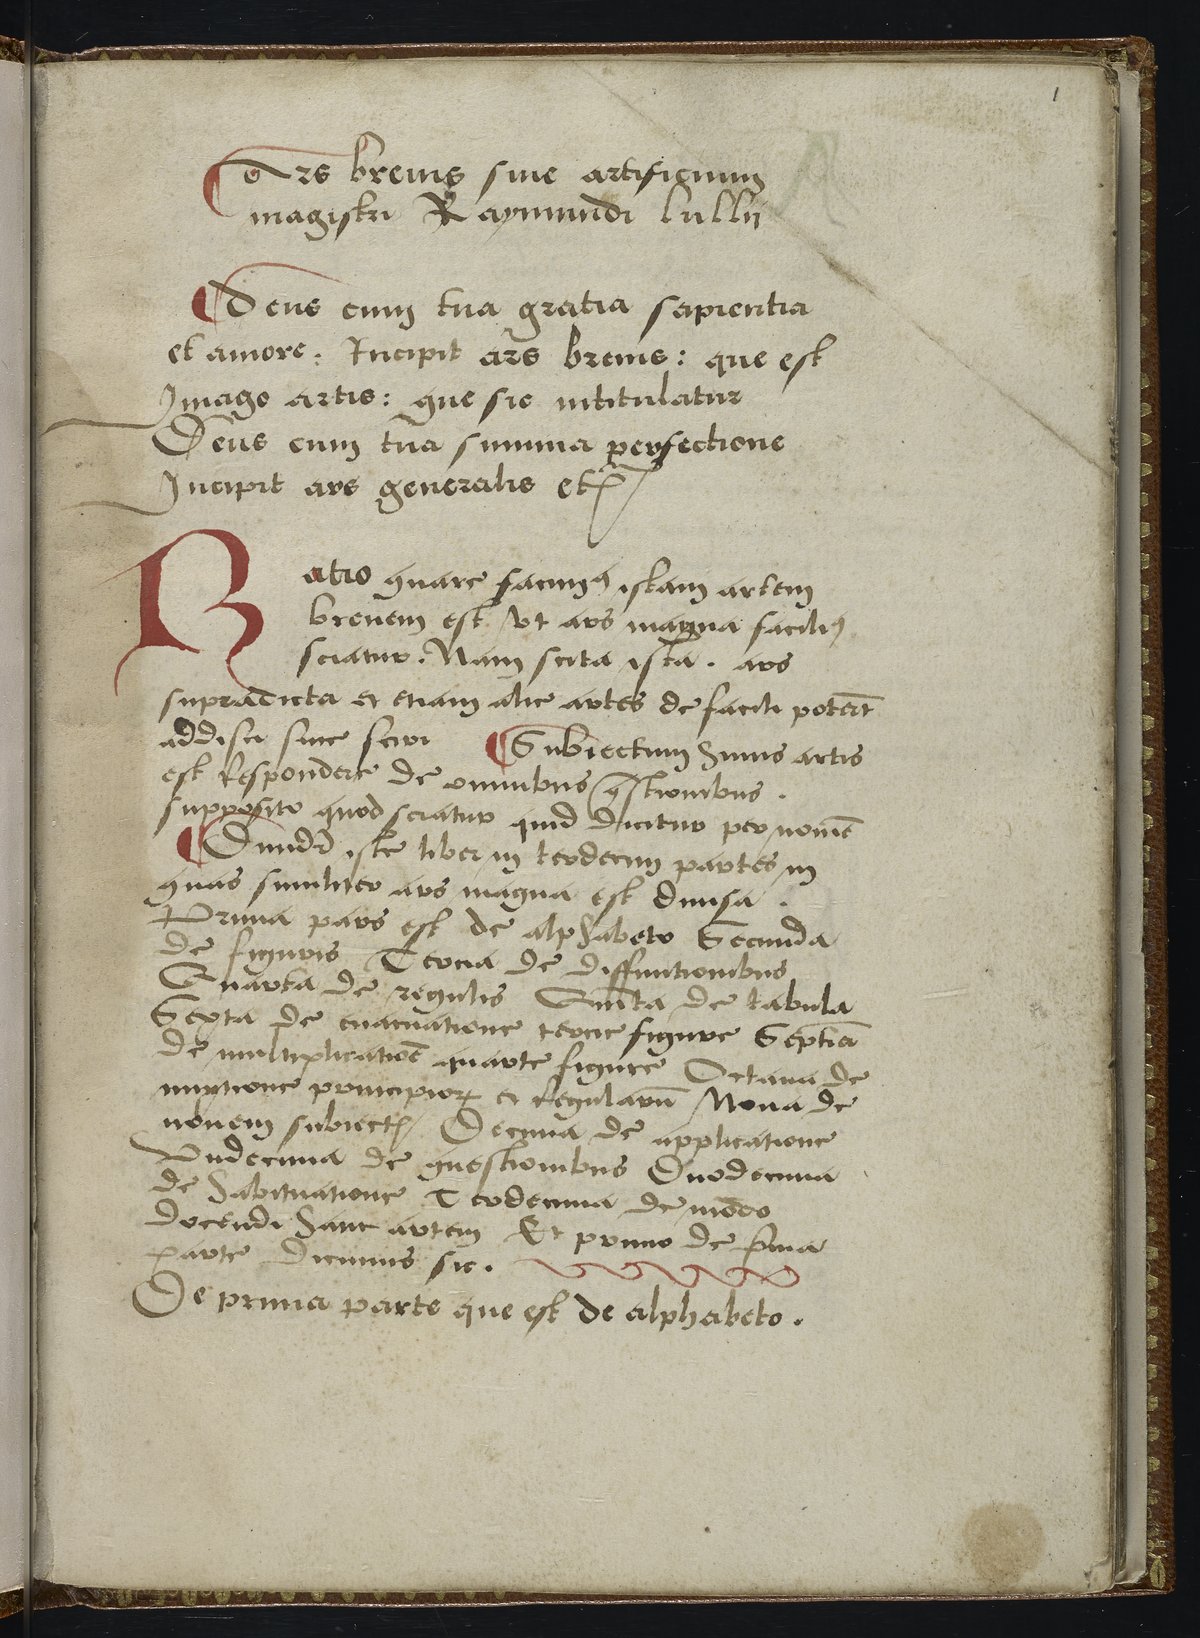 1
Ars brevis sive artificium
magistri Raymundi lullii
Deus cum tua gratia sapientia
et amore: Incipit ars brevis: que est
Imago artis: que sic intitulatur
Deus cum tua summa perfectione
Incipit ars generalis etc
Ratio quare facimꝰ istam artem
brevem est ut ars magna faciliꝰ
sciatur. Nam scita ista. ars
supradicta et etiam alie artes de facili poterūt
addisci sive sciri ¶ Subiectum huius artis
est Respondere de omnibus q̄stionibus.
supposito quod sciatur quid dicitur per nomē
¶ Dividit̄ iste liber in terdecim partes in
quas similiter ars magna est divisa.
Prima pars est de alphabeto Secunda
de figuris Tercia de diffinitionibus
Quarta de regulis Quīta de tabula
Sexta de evacuatione tercie figure Septīa
de multiplicatiōe quarte figure Octava de
mixtione principioꝝ et Regularū Nona de
novem subiectis Decima de applicatione
Undecima de questionibus Duodecima
de habituatione Terdecima de modo
docendi hanc artem Et primo de p̄ma
parte dicimus sic.
De prima parte que est de alphabeto.